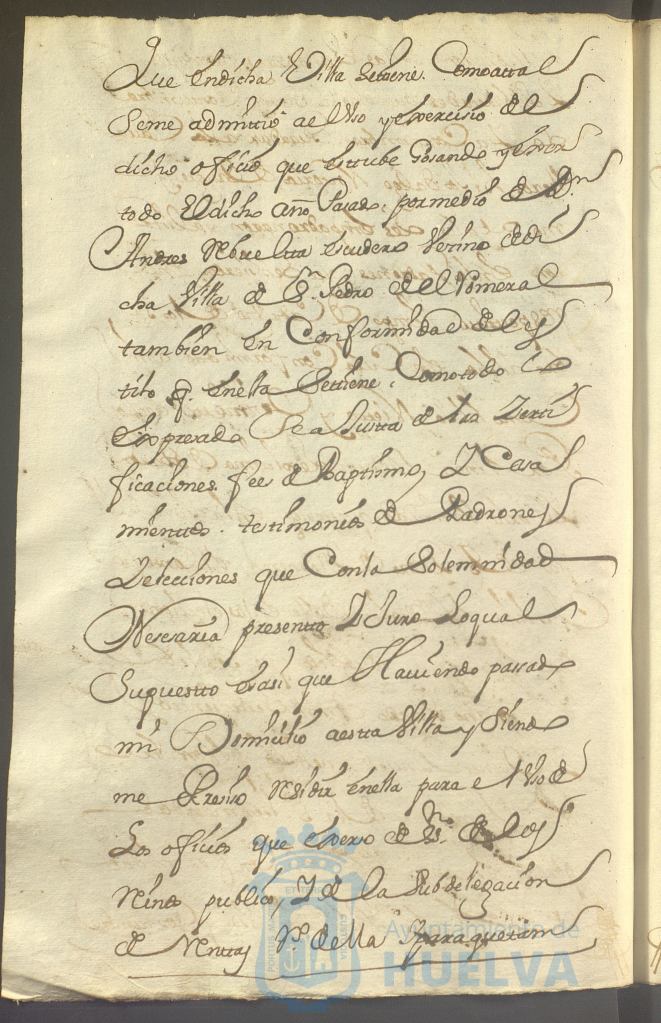 Que endicha Villa setiene. Comoatal
Seme admitio ael Uso yexercisio del
dicho oficio que estube Gosando yexer
todo Eldicho año Pasado. pormedio de Dn
Andres Rebuelta Escudero Vecino dedi
cha Villa de Sn. Pedro del Romeral
tambien en Conformidad del es
tilo q. enella Setiene, Comotodo lo
Expresado Sea Justta de las Zerti
ficaciones. fees de Baptismo, Y Casa
mientos. testimonios de Padrones
Yelecciones que Conla Solemnidad
Nesesaria presento Y Juro Loqual
Supuestto Esasi que Haviendo pasado
mi Domicilio aestta Villa y Siendo
me Presiso Residir enella para el Uso de
Los oficios que exerso de Es.no del
Reino publico, Y de la Subdelegacion
de Renttas Rs. della Yparaquetam
Ayuntamiento de
HUELVA